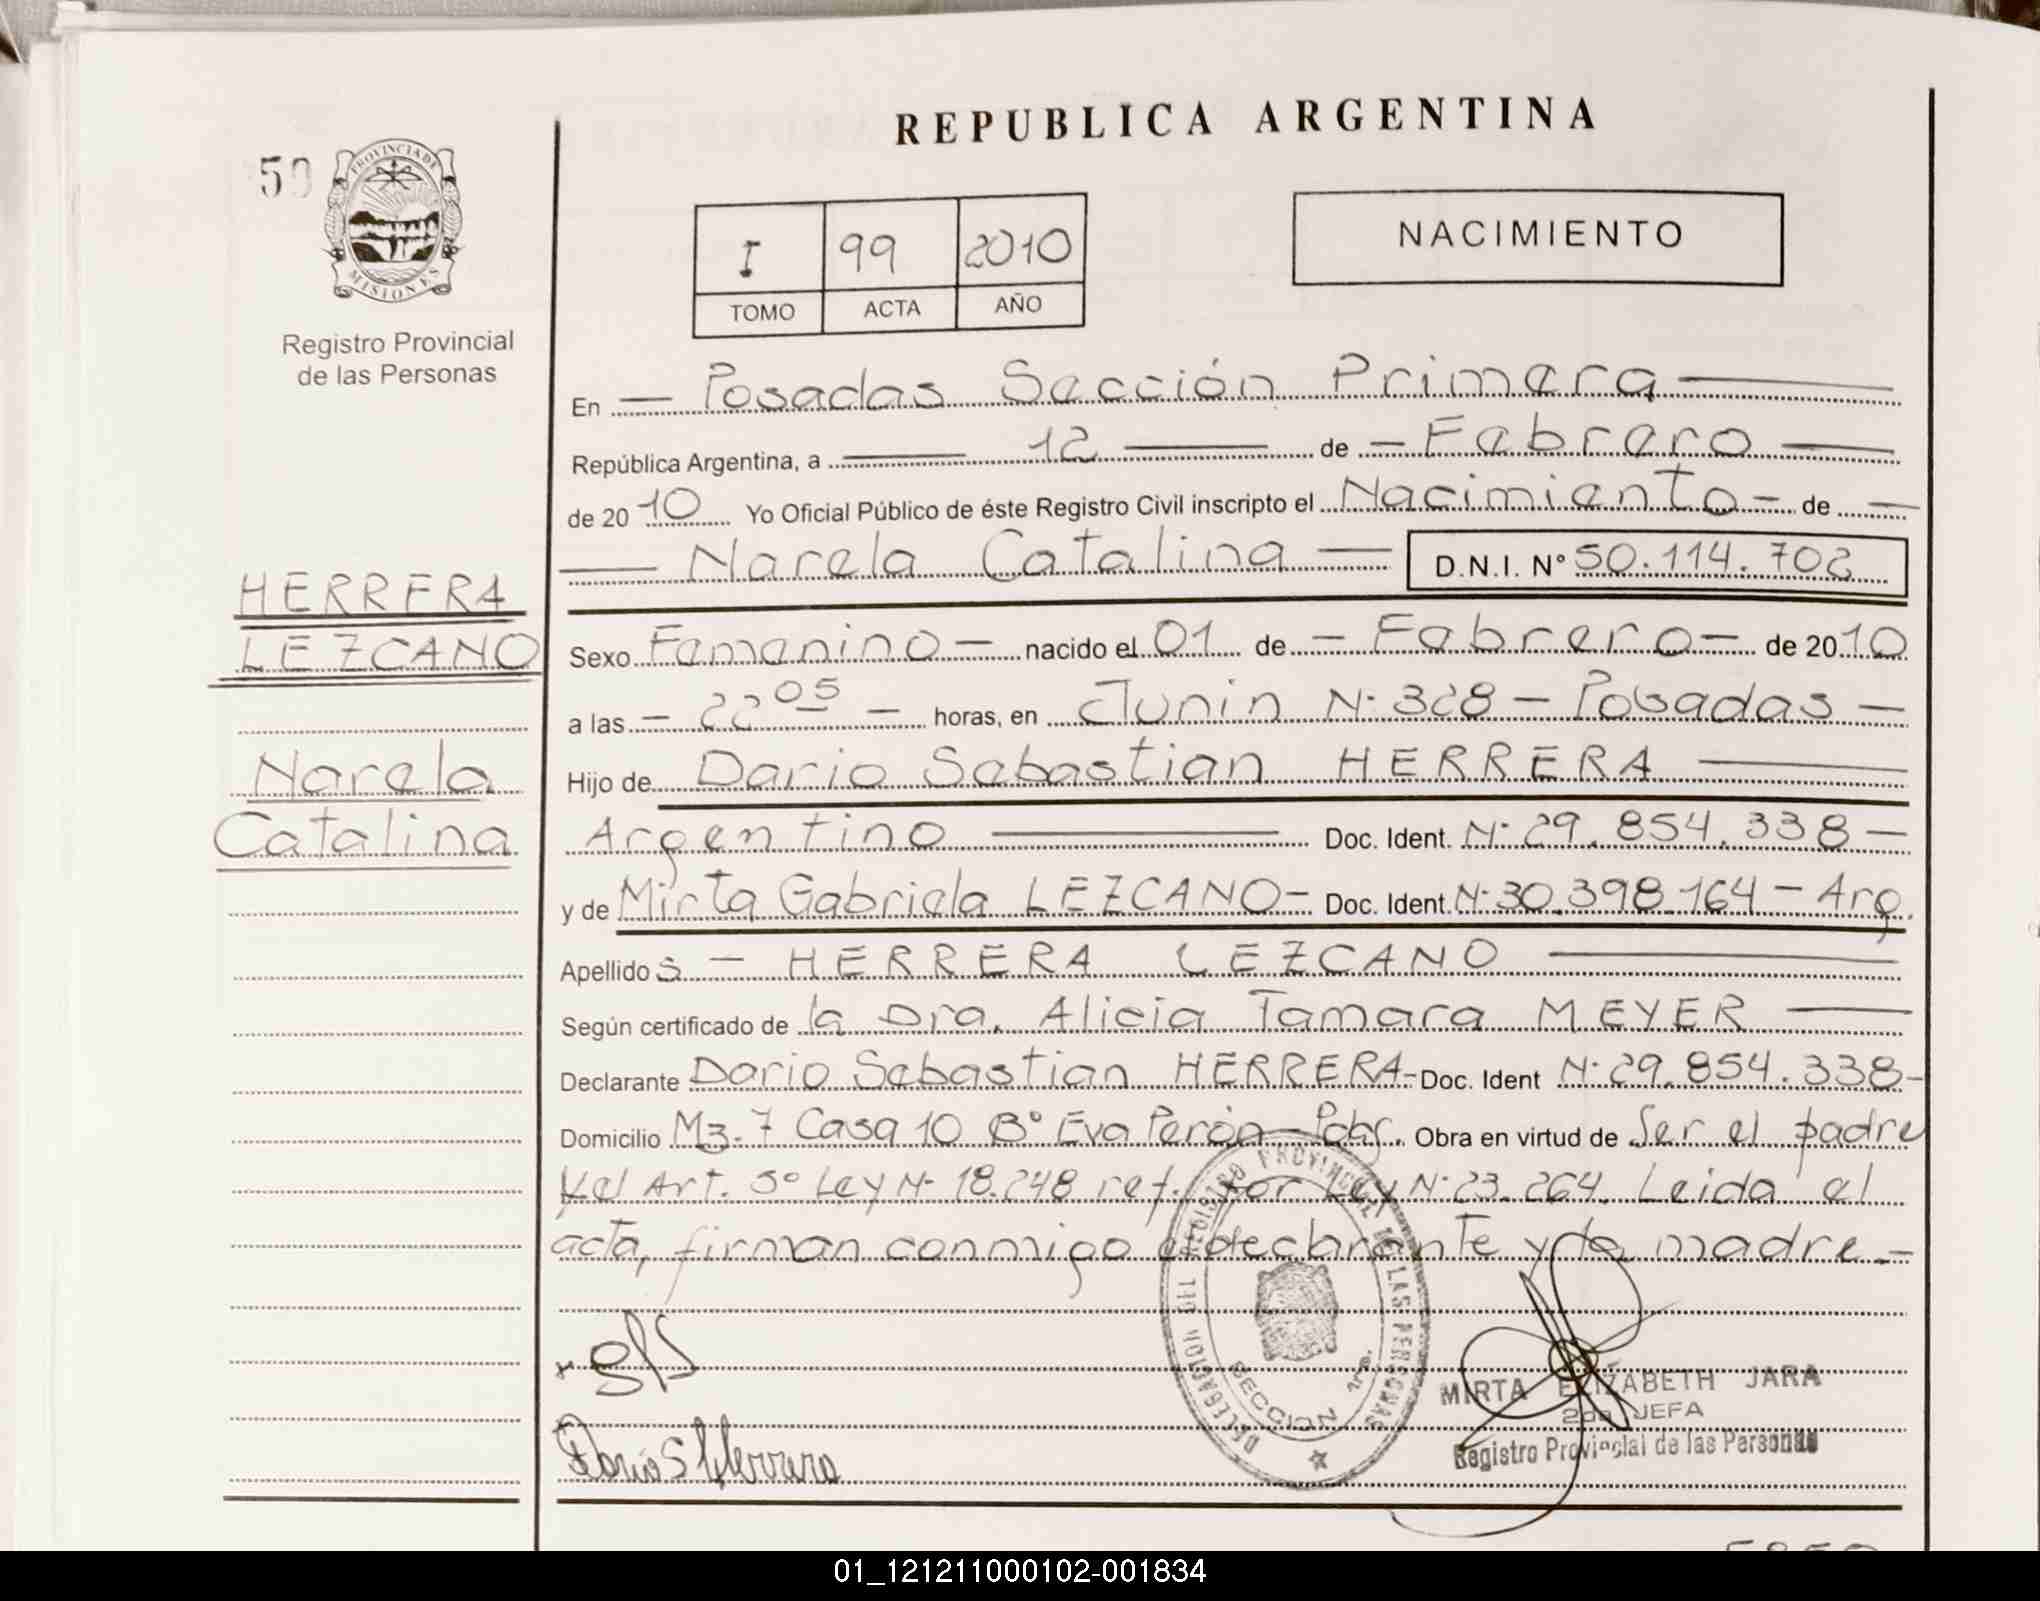 REPUBLICA ARGENTINA
50
PROVINCIA DE
MISIONES
Registro Provincial
de las Personas
I 99 2010
TOMO ACTA AÑO
NACIMIENTO
En — Posadas Sección Primera —
República Argentina, a — 12 — de — Febrero —
de 2010 Yo Oficial Público de éste Registro Civil inscripto el Nacimiento — de —
— Narela Catalina — D.N.I. Nº 50.114.702
HERRERA
LEZCANO
Narela
Catalina
Sexo Femenino — nacido el 01 de — Febrero — de 2010
a las — 22 05 — horas, en Junin Nº 328 — Posadas —
Hijo de Dario Sebastian HERRERA —
Argentino — Doc. Ident. Nº 29.854.338 —
y de Mirta Gabriela LEZCANO — Doc. Ident. Nº 30.398.164 — Arg.
Apellidos — HERRERA LEZCANO —
Según certificado de la Dra. Alicia Tamara MEYER —
Declarante Dario Sebastian HERRERA - Doc. Ident Nº 29.854.338 -
Domicilio Mz. 7 Casa 10 Bº Eva Perón — Obra en virtud de Ser el padre
y el Art. 5º Ley Nº 18.248 ref. por Ley Nº 23.264. Leida el
acta, firman conmigo el declarante y la madre. —
DELEGACION DEL REGISTRO PROVINCIAL DE LAS PERSONAS
SECCION 1ra.
Dario S Herrera
MIRTA ELIZABETH JARA
2da JEFA
Registro Provincial de las Personas
01_121211000102-001834